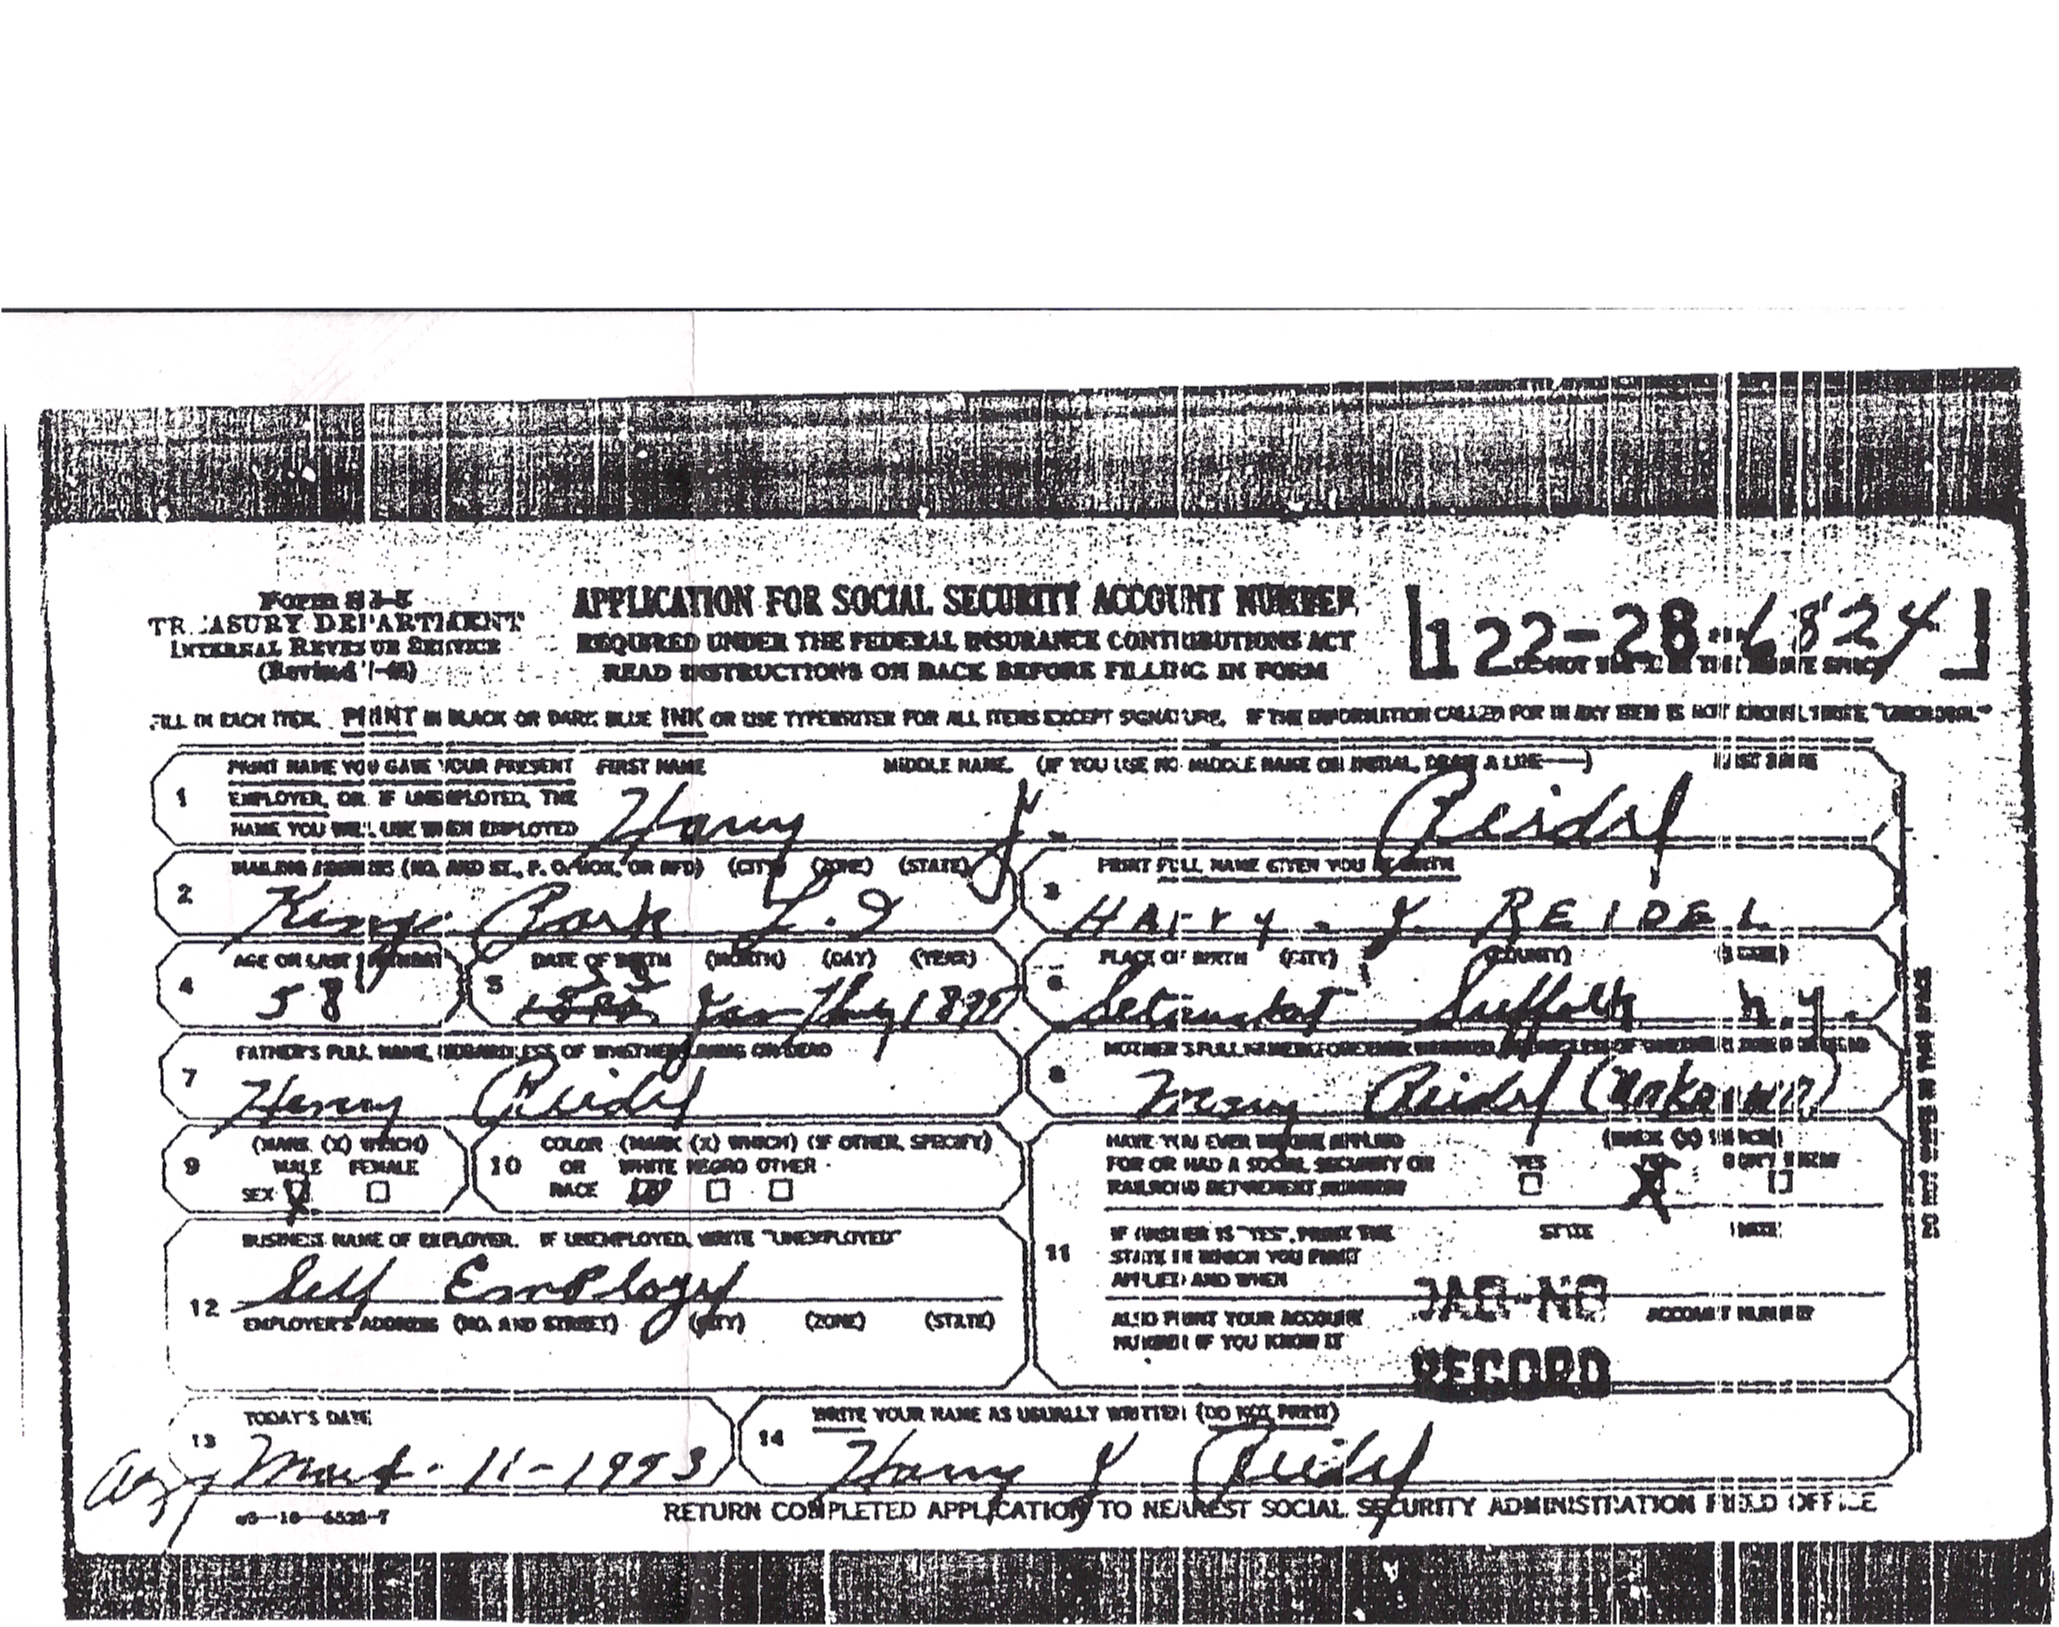 Form SS-5
TREASURY DEPARTMENT
INTERNAL REVENUE SERVICE
(Revised
APPLICATION FOR SOCIAL SECURITY ACCOUNT NUMBER
REQUIRED UNDER THE FEDERAL INSURANCE CONTRIBUTIONS ACT
READ INSTRUCTIONS ON BACK BEFORE FILLING IN FORM
122-28-6824
DO NOT WRITE IN THE ABOVE SPACE
FILL IN EACH ITEM. PRINT IN BLACK OR DARK BLUE INK OR USE TYPEWRITER FOR ALL ITEMS EXCEPT SIGNATURE. IF THE INFORMATION CALLED FOR IN ANY ITEM IS NOT KNOWN, WRITE "UNKNOWN."
1 PRINT NAME YOU GAVE YOUR PRESENT EMPLOYER, OR IF UNEMPLOYED, THE NAME YOU WILL USE WHEN EMPLOYED
FIRST NAME MIDDLE NAME. (IF YOU USE NO MIDDLE NAME OR INITIAL, DRAW A LINE—) LAST NAME
Harry J. Reidel
2 MAILING ADDRESS (NO. AND ST., P. O. BOX, OR RFD) (CITY) (ZONE) (STATE)
Kings Park L.I
3 PRINT FULL NAME GIVEN YOU AT BIRTH
HArry. J. REIDEL
4 AGE ON LAST BIRTHDAY
58
5 DATE OF BIRTH (MONTH) (DAY) (YEAR)
6 PLACE OF BIRTH (CITY) (COUNTY) (STATE)
Setauket Suffolk n.y.
7 FATHER'S FULL NAME, REGARDLESS OF WHETHER LIVING OR DEAD
Henry Reidel
8 MOTHER'S FULL NAME BEFORE EVER MARRIED, REGARDLESS OF WHETHER LIVING OR DEAD
Mary Reidel (Unknown)
9 SEX (MARK (X) WHICH)
MALE FEMALE
X
10 COLOR OR RACE (MARK (X) WHICH) (IF OTHER, SPECIFY)
WHITE NEGRO OTHER
11 HAVE YOU EVER BEFORE APPLIED FOR OR HAD A SOCIAL SECURITY OR RAILROAD RETIREMENT NUMBER?
(MARK (X) WHICH)
YES DON'T KNOW
X
IF ANSWER IS "YES", PRINT THE STATE IN WHICH YOU FIRST APPLIED AND WHEN
STATE DATE
ALSO PRINT YOUR ACCOUNT NUMBER IF YOU KNOW IT
ACCOUNT NUMBER
RECORD
12 BUSINESS NAME OF EMPLOYER. IF UNEMPLOYED, WRITE "UNEMPLOYED"
Self Employd
EMPLOYER'S ADDRESS (NO. AND STREET) (CITY) (ZONE) (STATE)
13 TODAY'S DATE
11-1953
14 WRITE YOUR NAME AS USUALLY WRITTEN (DO NOT PRINT)
Harry J Reidel
RETURN COMPLETED APPLICATION TO NEAREST SOCIAL SECURITY ADMINISTRATION FIELD OFFICE